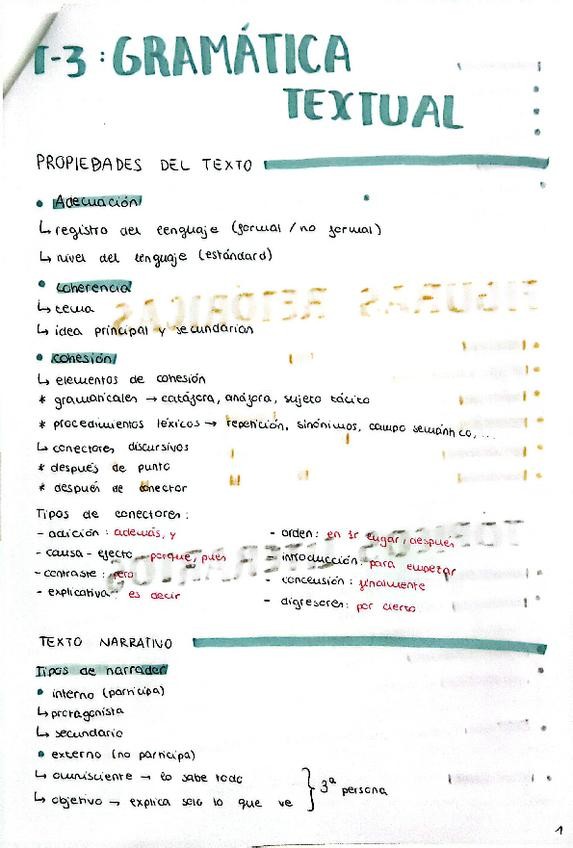 T-3: GRAMÁTICA
TEXTUAL
PROPIEDADES DEL TEXTO
• Adecuación
↳ registro del lenguaje (formal / no formal)
↳ nivel del lenguaje (estándard)
• coherencia
↳ tema
↳ idea principal y secundarias
• cohesión
↳ elementos de cohesión
* gramaticales → catáfora, anáfora, sujeto tácito
* procedimientos léxicos → repetición, sinónimos, campo semántico, ...
↳ conectores discursivos
* después de punto
* después de conector
Tipos de conectores:
- adición: además, y
- causa-efecto: porque, pues
- contraste: pero
- explicativa: es decir
- orden: en 1r lugar, después
- introducción: para empezar
- conclusión: finalmente
- digresores: por cierto
TEXTO NARRATIVO
Tipos de narrador
• interno (participa)
↳ protagonista
↳ secundario
• externo (no participa)
↳ omnisciente → lo sabe todo
↳ objetivo → explica solo lo que ve
} 3ª persona
1